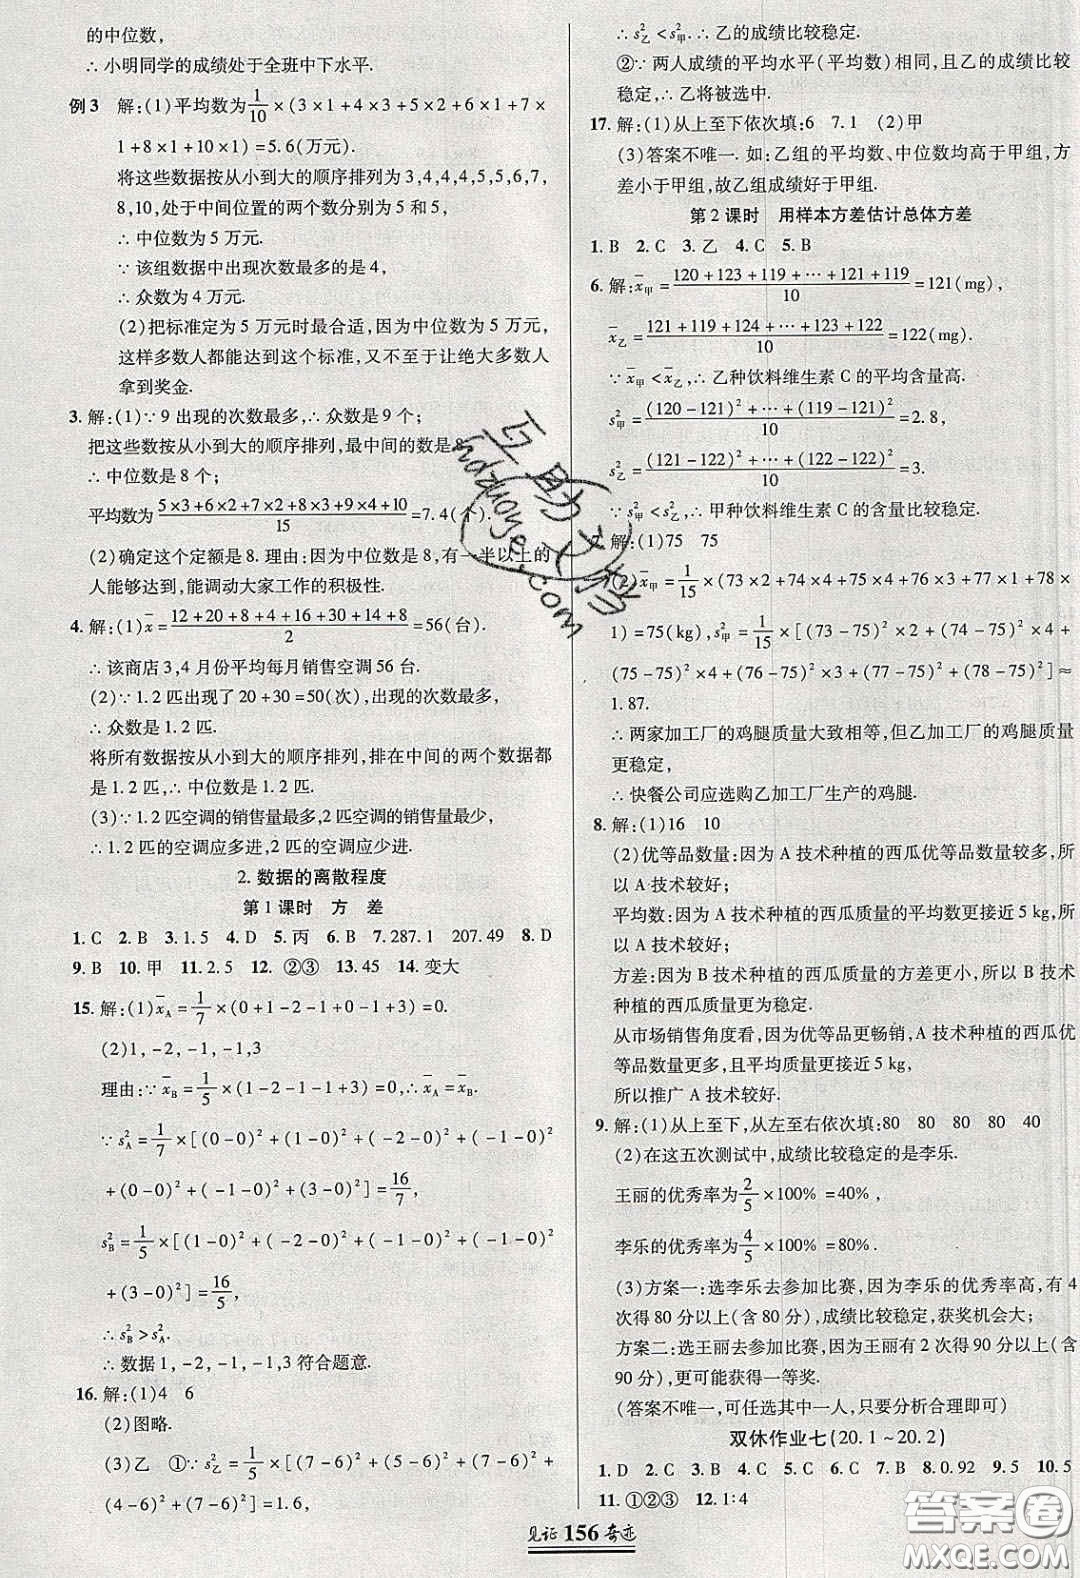 的中位数,
∴小明同学的成绩处于全班中下水平.
例3 解:(1)平均数为1/10×(3×1+4×3+5×2+6×1+7×
1+8×1+10×1)=5.6(万元).
将这些数据按从小到大的顺序排列为3,4,4,4,5,5,6,7,
8,10,处于中间位置的两个数分别为5和5,
∴中位数为5万元.
∵该组数据中出现次数最多的是4,
∴众数为4万元.
(2)把标准定为5万元时最合适,因为中位数为5万元,
这样多数人都能达到这个标准,又不至于让绝大多数人
拿到奖金.
3. 解:(1)∵9出现的次数最多,∴众数是9个;
把这些数按从小到大的顺序排列,最中间的数是8,
∴中位数是8个;
平均数为(5×3+6×2+7×2+8×3+9×4+10)/15=7.4(个).
(2)确定这个定额是8.理由:因为中位数是8,有一半以上的
人能够达到,能调动大家工作的积极性.
4. 解:(1)x̄=(12+20+8+4+16+30+14+8)/2=56(台).
∴该商店3,4月份平均每月销售空调56台.
(2)∵1.2匹出现了20+30=50(次),出现的次数最多,
∴众数是1.2匹.
将所有数据按从小到大的顺序排列,排在中间的两个数据都
是1.2匹,∴中位数是1.2匹.
(3)∵1.2匹空调的销售量最多,2匹空调的销售量最少,
∴1.2匹的空调应多进,2匹的空调应少进.
2.数据的离散程度
第1课时 方 差
1. C 2. B 3. 1.5 4. D 5. 丙 6. B 7. 287.1 207.49 8. D
9. B 10. 甲 11. 2.5 12. ②③ 13. 45 14. 变大
15. 解:(1)x̄A=1/7×(0+1-2-1+0-1+3)=0.
(2)1,-2,-1,-1,3
理由:∵x̄B=1/5×(1-2-1-1+3)=0,∴x̄A=x̄B.
∵s²A=1/7×[(0-0)²+(1-0)²+(-2-0)²+(-1-0)²
+(0-0)²+(-1-0)²+(3-0)²]=16/7,
s²B=1/5×[(1-0)²+(-2-0)²+(-1-0)²+(-1-0)²
+(3-0)²]=16/5,
∴s²B>s²A.
∴数据1,-2,-1,-1,3符合题意.
16. 解:(1)4 6
(2)图略.
(3)乙 ①∵s²乙=1/5×[(7-6)²+(5-6)²+(7-6)²+
(4-6)²+(7-6)²]=1.6,
∴s²乙<s²甲.∴乙的成绩比较稳定.
②∵两人成绩的平均水平(平均数)相同,且乙的成绩比较
稳定,∴乙将被选中.
17. 解:(1)从上至下依次填:6 7.1 (2)甲
(3)答案不唯一.如:乙组的平均数、中位数均高于甲组,方
差小于甲组,故乙组成绩好于甲组.
第2课时 用样本方差估计总体方差
1. B 2. C 3. 乙 4. C 5. B
6. 解:x̄甲=(120+123+119+…+121+119)/10=121(mg),
x̄乙=(121+119+124+…+123+122)/10=122(mg).
∵x̄甲<x̄乙,∴乙种饮料维生素C的平均含量高.
s²甲=((120-121)²+…+(119-121)²)/10=2.8,
s²乙=((121-122)²+…+(122-122)²)/10=3.
∵s²甲<s²乙,∴甲种饮料维生素C的含量比较稳定.
7. 解:(1)75 75
(2)x̄甲=1/15×(73×2+74×4+75×4+76×3+77×1+78×
1)=75(kg),s²甲=1/15×[(73-75)²×2+(74-75)²×4+
(75-75)²×4+(76-75)²×3+(77-75)²+(78-75)²]≈
1.87.
∴两家加工厂的鸡腿质量大致相等,但乙加工厂的鸡腿质量
更稳定,
∴快餐公司应选购乙加工厂生产的鸡腿.
8. 解:(1)16 10
(2)优等品数量:因为A技术种植的西瓜优等品数量较多,所
以A技术较好;
平均数:因为A技术种植的西瓜质量的平均数更接近5 kg,所
以A技术较好;
方差:因为B技术种植的西瓜质量的方差更小,所以B技术
种植的西瓜质量更为稳定.
从市场销售角度看,因为优等品更畅销,A技术种植的西瓜优
等品数量更多,且平均质量更接近5 kg,
所以推广A技术较好.
9. 解:(1)从上至下,从左至右依次填:80 80 80 80 40
(2)在这五次测试中,成绩比较稳定的是李乐.
王丽的优秀率为2/5×100%=40%,
李乐的优秀率为4/5×100%=80%.
(3)方案一:选李乐去参加比赛,因为李乐的优秀率高,有4
次得80分以上(含80分),成绩比较稳定,获奖机会大;
方案二:选王丽去参加比赛,因为王丽有2次得90分以上(含
90分),更可能获得一等奖.
(答案不唯一,可任选其中一人,只要分析合理即可)
双休作业七(20.1~20.2)
1. D 2. C 3. C 4. B 5. B 6. D 7. B 8. 0.92 9. 5 10. 5
11. ①②③ 12. 1:4
见证 156 奇迹
互助文档
hdzuoye.com
答案圈
MXQE.COM